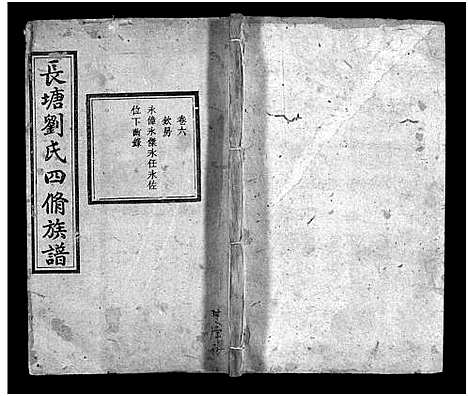 長塘劉氏四脩族譜
卷六
欽房
永偉永傑永任永佐
位下齒錄